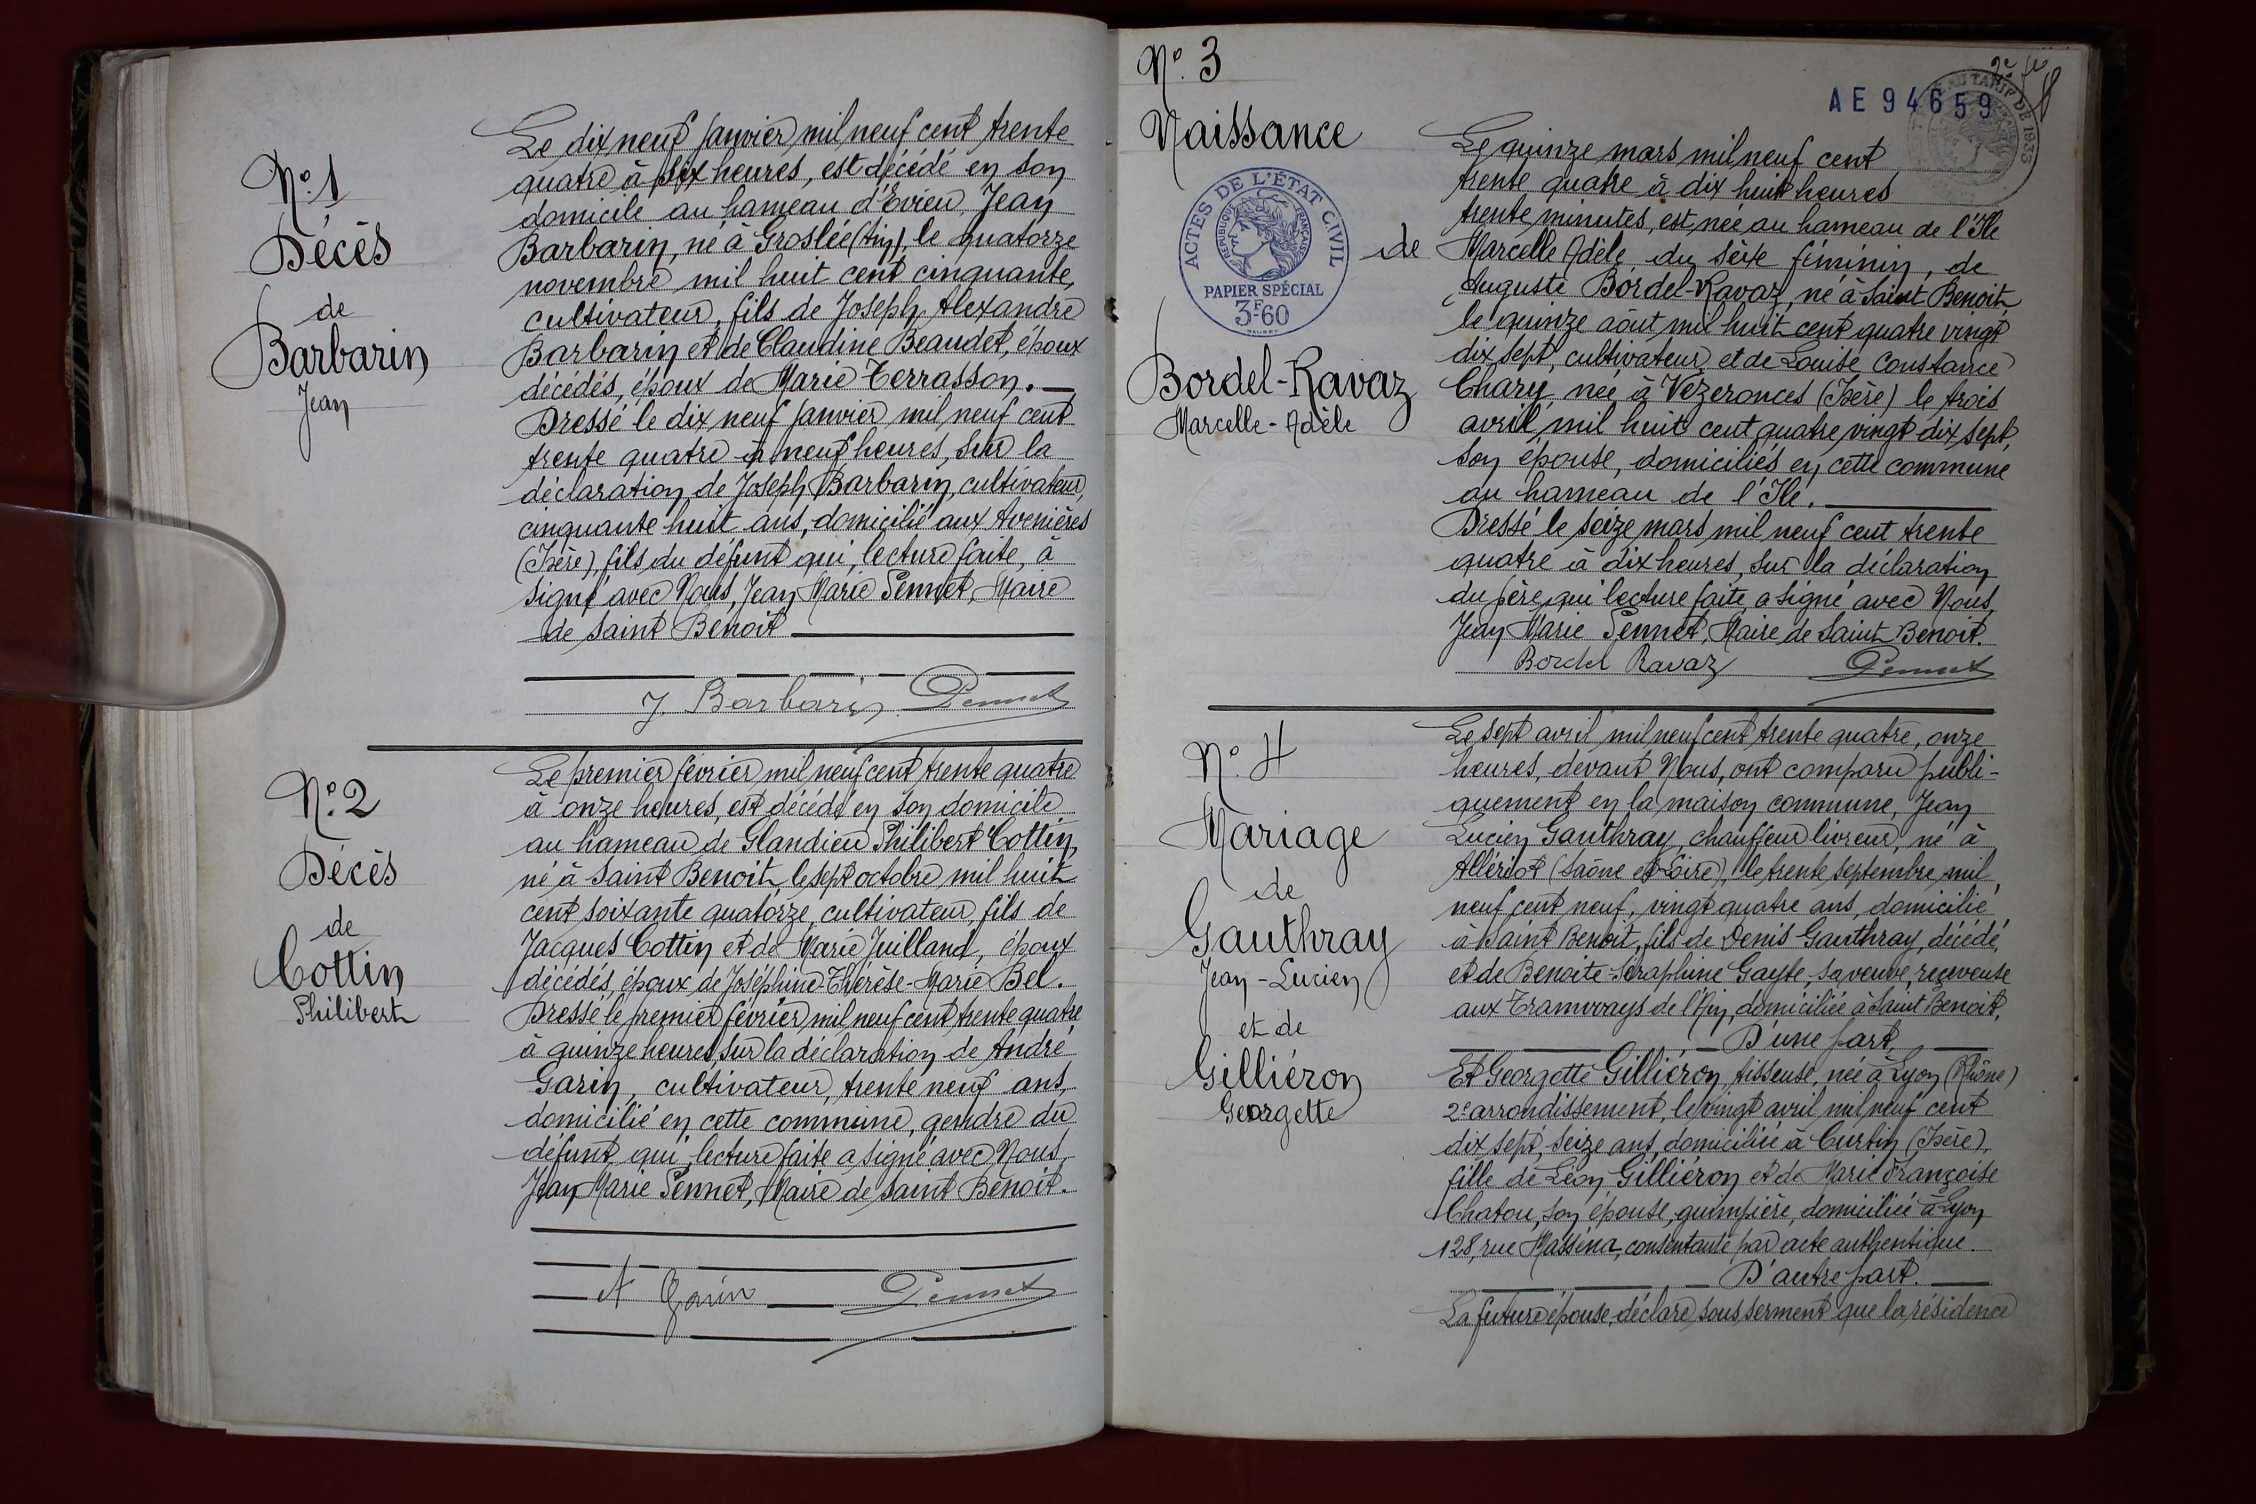 N° 1
Décès
de
Barbarin
Jean
Le dix neuf janvier mil neuf cent trente
quatre à six heures, est décédé en son
domicile au hameau d'Evieu, Jean
Barbarin, né à Groslée (Ain), le quatorze
novembre mil huit cent cinquante,
cultivateur, fils de Joseph Alexandre
Barbarin et de Claudine Beaudet, époux
décédés, époux de Marie Terrasson.
Dressé le dix neuf janvier mil neuf cent
trente quatre à neuf heures, sur la
déclaration de Joseph Barbarin, cultivateur,
cinquante huit ans, domicilié aux Avenières
(Isère), fils du défunt qui, lecture faite, à
signé avec Nous, Jean Marie Pennet, Maire
de Saint Benoit
J. Barbarin Pennet
N° 2
Décès
de
Cottin
Philibert
Le premier février mil neuf cent trente quatre
à onze heures, est décédé en son domicile
au hameau de Glandieu Philibert Cottin,
né à Saint Benoit, le sept octobre mil huit
cent soixante quatorze, cultivateur, fils de
Jacques Cottin et de Marie Juilland, époux
décédés, époux de Joséphine-Thérèse-Marie Bel.
Dressé le premier février mil neuf cent trente quatre
à quinze heures, sur la déclaration de André
Garin, cultivateur, trente neuf ans,
domicilié en cette commune, gendre du
défunt, qui, lecture faite a signé avec Nous,
Jean Marie Pennet, Maire de Saint Benoit.
A Garin Pennet
N° 3
Naissance
ACTES DE L'ÉTAT CIVIL
RÉPUBLIQUE FRANÇAISE
PAPIER SPÉCIAL
3F60
de
Bordel-Ravaz
Marcelle-Adèle
2e
AE 94659
TARIF DE 1933
Le quinze mars mil neuf cent
trente quatre à dix huit heures
trente minutes, est née au hameau de l'Ile
Marcelle Adèle du sèxe féminin, de
Auguste Bordel-Ravaz, né à Saint Benoit,
le quinze août mil huit cent quatre vingt
dix sept, cultivateur, et de Louise Constance
Chary, née à Vézeronces (Isère) le trois
avril, mil huit cent quatre vingt dix sept,
son épouse, domiciliés en cette commune
au hameau de l'Ile.
Dressé le seize mars mil neuf cent trente
quatre à dix heures, sur la déclaration
du père, qui lecture faite, a signé avec Nous,
Jean Marie Pennet, Maire de Saint Benoit.
Bordel Ravaz Pennet
N° 4
Mariage
de
Gauthray
Jean-Lucien
et de
Gilliéron
Georgette
Le sept avril mil neuf cent trente quatre, onze
heures, devant Nous, ont comparu publi-
quement en la maison commune, Jean
Lucien Gauthray, chauffeur livreur, né à
Allériot (Saône et Loire), le trente septembre mil
neuf cent neuf, vingt quatre ans, domicilié
à Saint Benoit, fils de Denis Gauthray, décédé,
et de Benoite-Séraphine Gayte, sa veuve, receveuse
aux Tramways de l'Ain, domiciliée à Saint Benoit,
D'une part,
Et Georgette Gilliéron, tisseuse, née à Lyon (Rhône)
2e arrondissement, le vingt avril mil neuf cent
dix sept, seize ans, domiciliée à Curtin (Isère),
fille de Léon Gilliéron et de Marie Françoise
Chatou, son épouse, guimpière, domiciliée à Lyon
128, rue Masséna, consentante par acte authentique.
D'autre part.
La future épouse déclare sous serment que la résidence